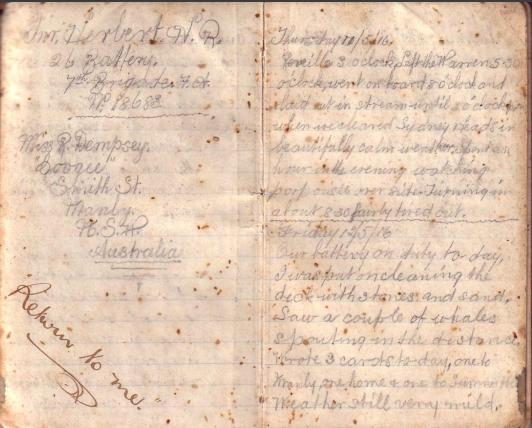 Gnr. Herbert. W. R.
26 Battery.
7th Brigade. F. A.
Miss R. Dempsey.
"Coogee"
Smith St.
Manly.
N. S. W.
Australia
Return to me."
Thursday 11/5/16.
Reveille 3 o'clock, left the Warren 5-30
o'clock, went on board 8 o'clock and
laid out in stream until 3 o'clock
when we cleared Sydney Heads in
beautifully calm weather. Spent an
hour in the evening watching
porpoises over side. Turning in
about 8.30 fairly tired out.
Friday 12/5/16
Our battery on duty to day,
I was put on cleaning the
deck with stones and sand.
Saw a couple of whales
spouting in the distance
Wrote 3 cards to day, one to
Manly, one home & one to
Weather still very mild.